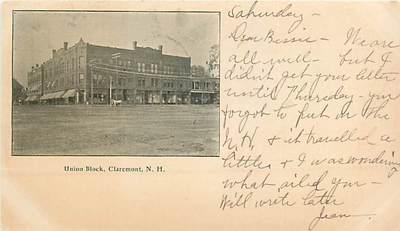 Saturday -
Dear Bessie - We are
all well - but I
didn't get your letter
until Thursday - you
forgot to put on the
N. H. & it travelled a
little & I was wondering
what ailed you -
Will write later
Jean -
Union Block, Claremont, N. H.